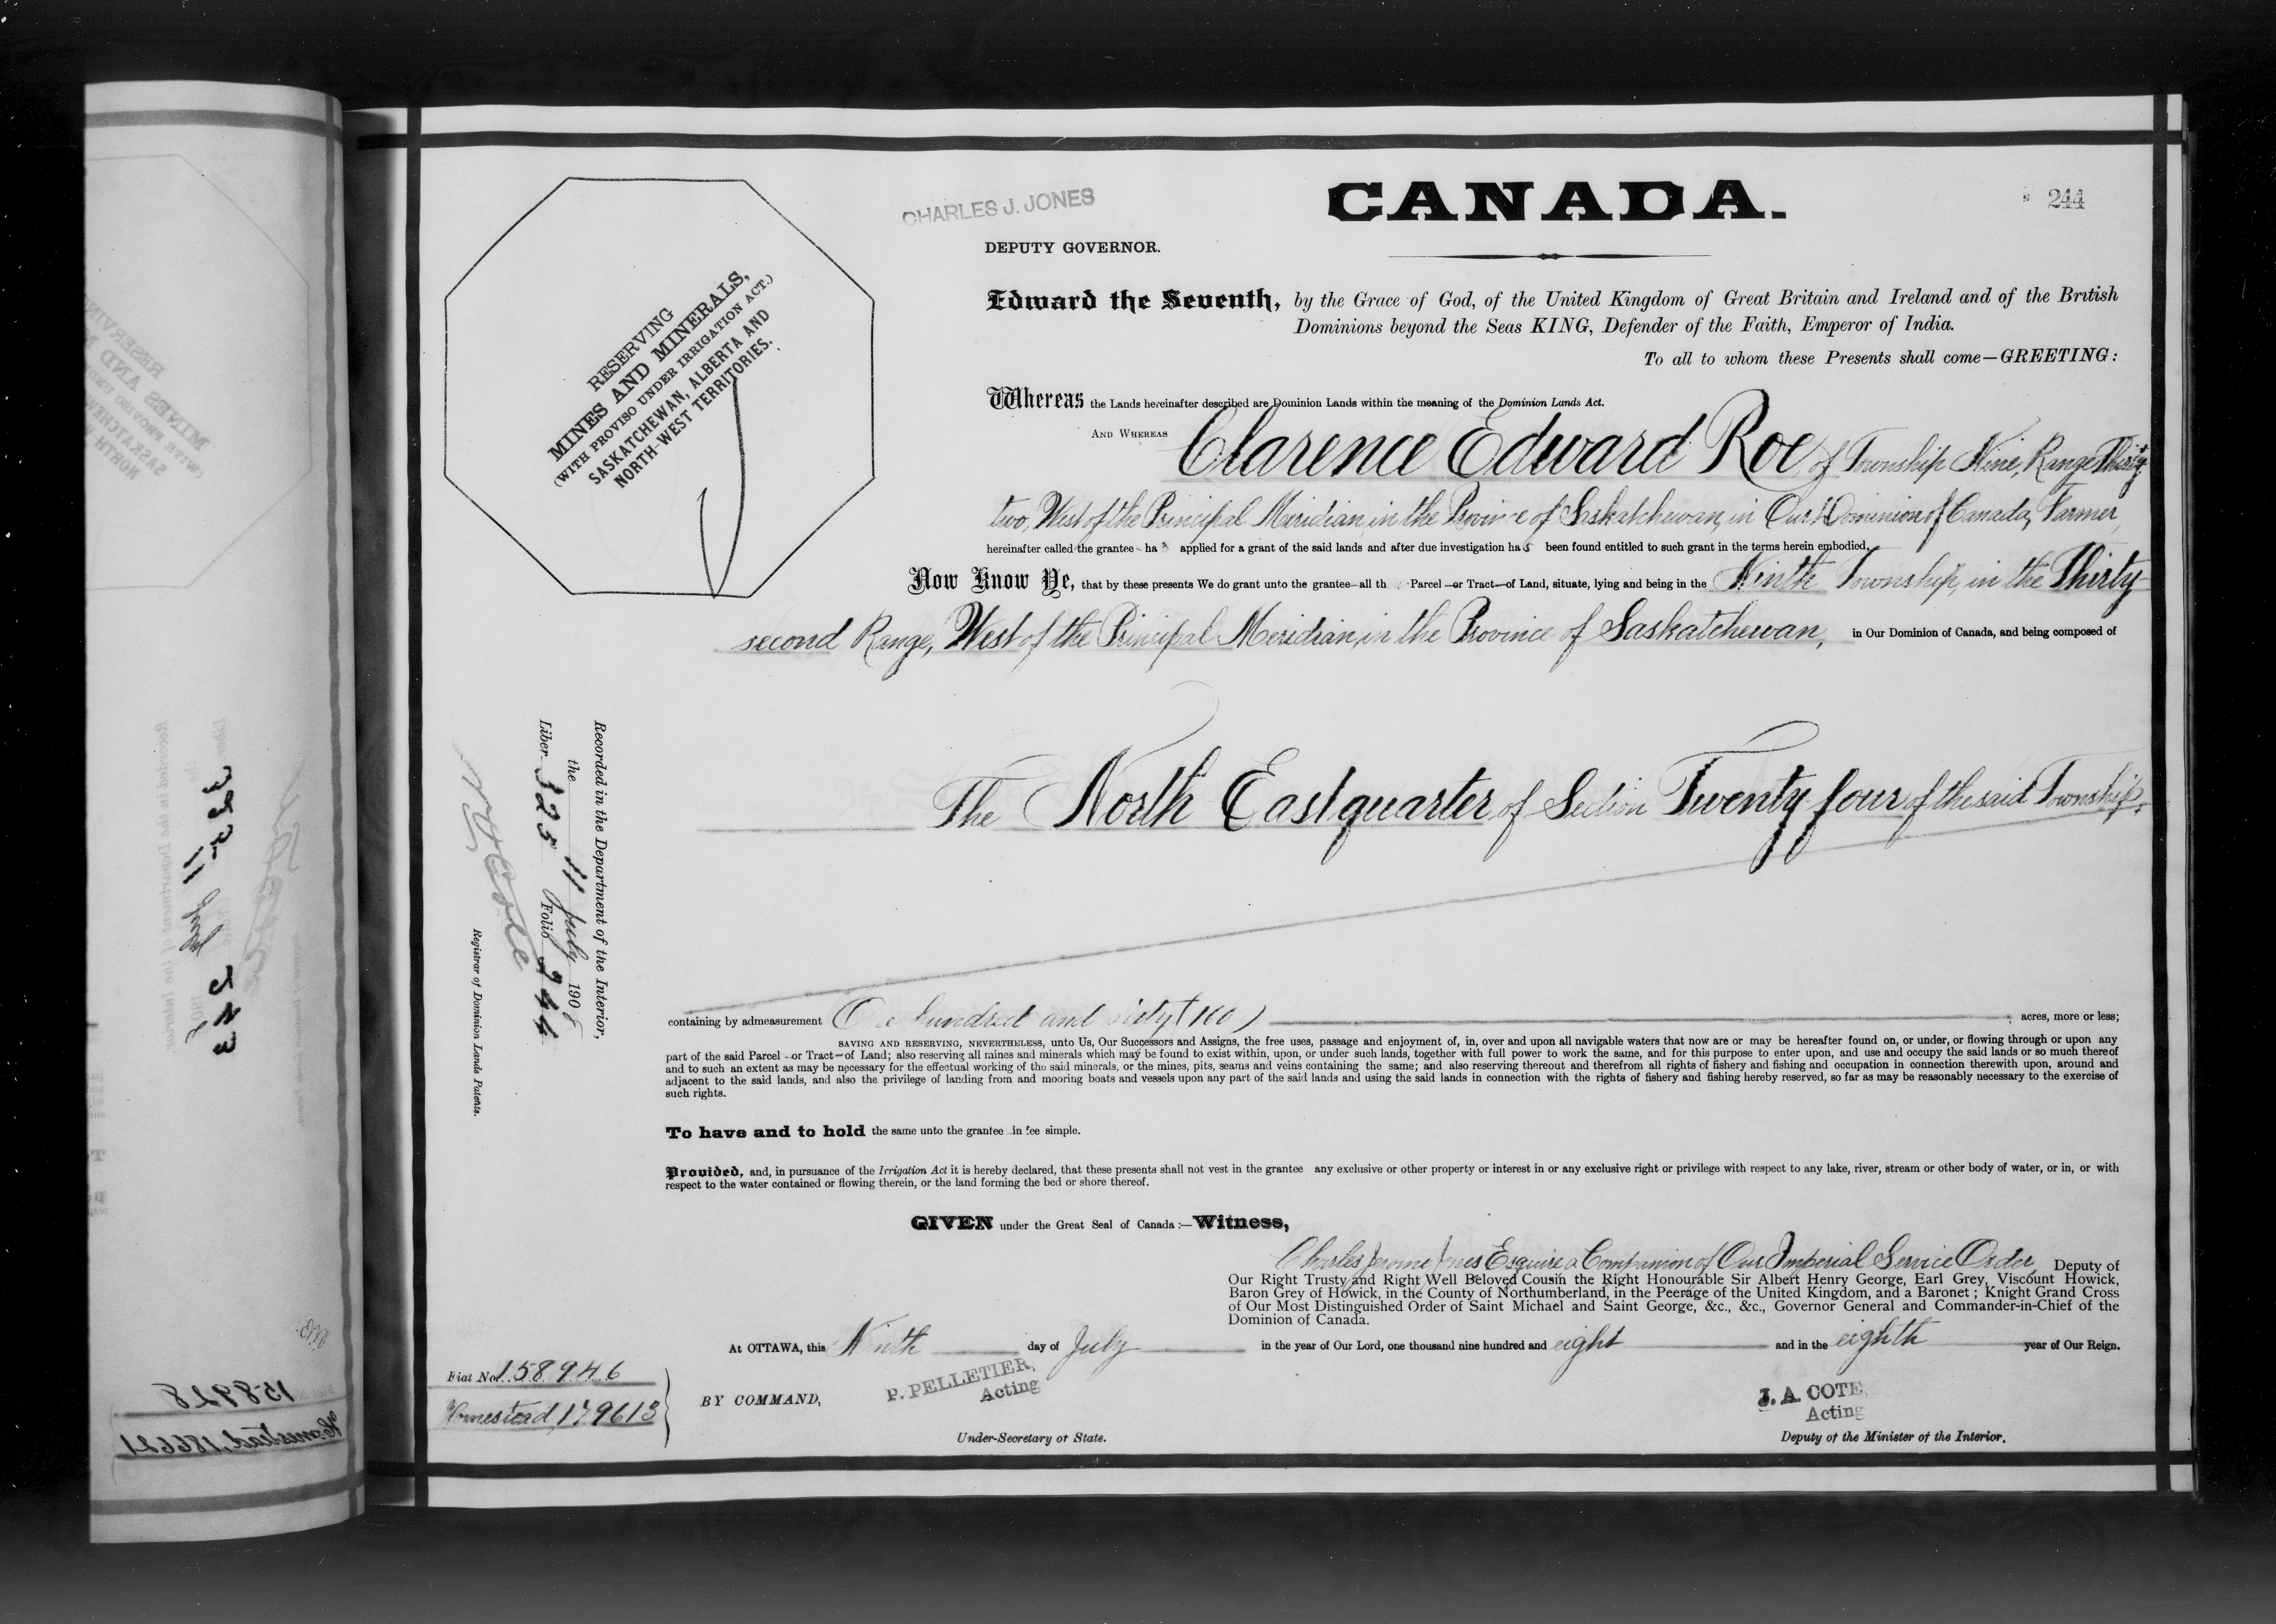 CHARLES J. JONES
CANADA.
244
DEPUTY GOVERNOR.
RESERVING
MINES AND MINERALS,
(WITH PROVISO UNDER IRRIGATION ACT.)
SASKATCHEWAN, ALBERTA AND
NORTH-WEST TERRITORIES.
Edward the Seventh, by the Grace of God, of the United Kingdom of Great Britain and Ireland and of the British
Dominions beyond the Seas KING, Defender of the Faith, Emperor of India.
To all to whom these Presents shall come—GREETING:
Whereas the Lands hereinafter described are Dominion Lands within the meaning of the Dominion Lands Act.
AND WHEREAS Clarence Edward Roe, of Township Nine, Range Thirty
two, West of the Principal Meridian, in the Province of Saskatchewan, in Our Dominion of Canada, Farmer,
hereinafter called the grantee has applied for a grant of the said lands and after due investigation has been found entitled to such grant in the terms herein embodied.
Now Know Ye, that by these presents We do grant unto the grantee all th Parcel or Tract of Land, situate, lying and being in the Ninth Township, in the Thirty
second Range, West of the Principal Meridian, in the Province of Saskatchewan, in Our Dominion of Canada, and being composed of
The North East quarter of Section Twenty four of the said Township,
Recorded in the Department of the Interior,
the 11 July 1908
Liber 325 Folio 244
Registrar of Dominion Lands Patents.
containing by admeasurement One hundred and sixty (160) acres, more or less;
SAVING AND RESERVING, NEVERTHELESS, unto Us, Our Successors and Assigns, the free uses, passage and enjoyment of, in, over and upon all navigable waters that now are or may be hereafter found on, or under, or flowing through or upon any
part of the said Parcel or Tract of Land; also reserving all mines and minerals which may be found to exist within, upon, or under such lands, together with full power to work the same, and for this purpose to enter upon, and use and occupy the said lands or so much thereof
and to such an extent as may be necessary for the effectual working of the said minerals, or the mines, pits, seams and veins containing the same; and also reserving thereout and therefrom all rights of fishery and fishing and occupation in connection therewith upon, around and
adjacent to the said lands, and also the privilege of landing from and mooring boats and vessels upon any part of the said lands and using the said lands in connection with the rights of fishery and fishing hereby reserved, so far as may be reasonably necessary to the exercise of
such rights.
To have and to hold the same unto the grantee in fee simple.
Provided, and, in pursuance of the Irrigation Act it is hereby declared, that these presents shall not vest in the grantee any exclusive or other property or interest in or any exclusive right or privilege with respect to any lake, river, stream or other body of water, or in, or with
respect to the water contained or flowing therein, or the land forming the bed or shore thereof.
GIVEN under the Great Seal of Canada:—Witness,
Charles Jerome Jones Esquire a Companion of Our Imperial Service Order, Deputy of
Our Right Trusty and Right Well Beloved Cousin the Right Honourable Sir Albert Henry George, Earl Grey, Viscount Howick,
Baron Grey of Howick, in the County of Northumberland, in the Peerage of the United Kingdom, and a Baronet; Knight Grand Cross
of Our Most Distinguished Order of Saint Michael and Saint George, &c., &c., Governor General and Commander-in-Chief of the
Dominion of Canada.
At OTTAWA, this Ninth day of July in the year of Our Lord, one thousand nine hundred and eight and in the eighth year of Our Reign.
Fiat No. 158946
Homestead, 179613
BY COMMAND,
P. PELLETIER,
Acting
Under-Secretary of State.
J. A. COTE,
Acting
Deputy of the Minister of the Interior.